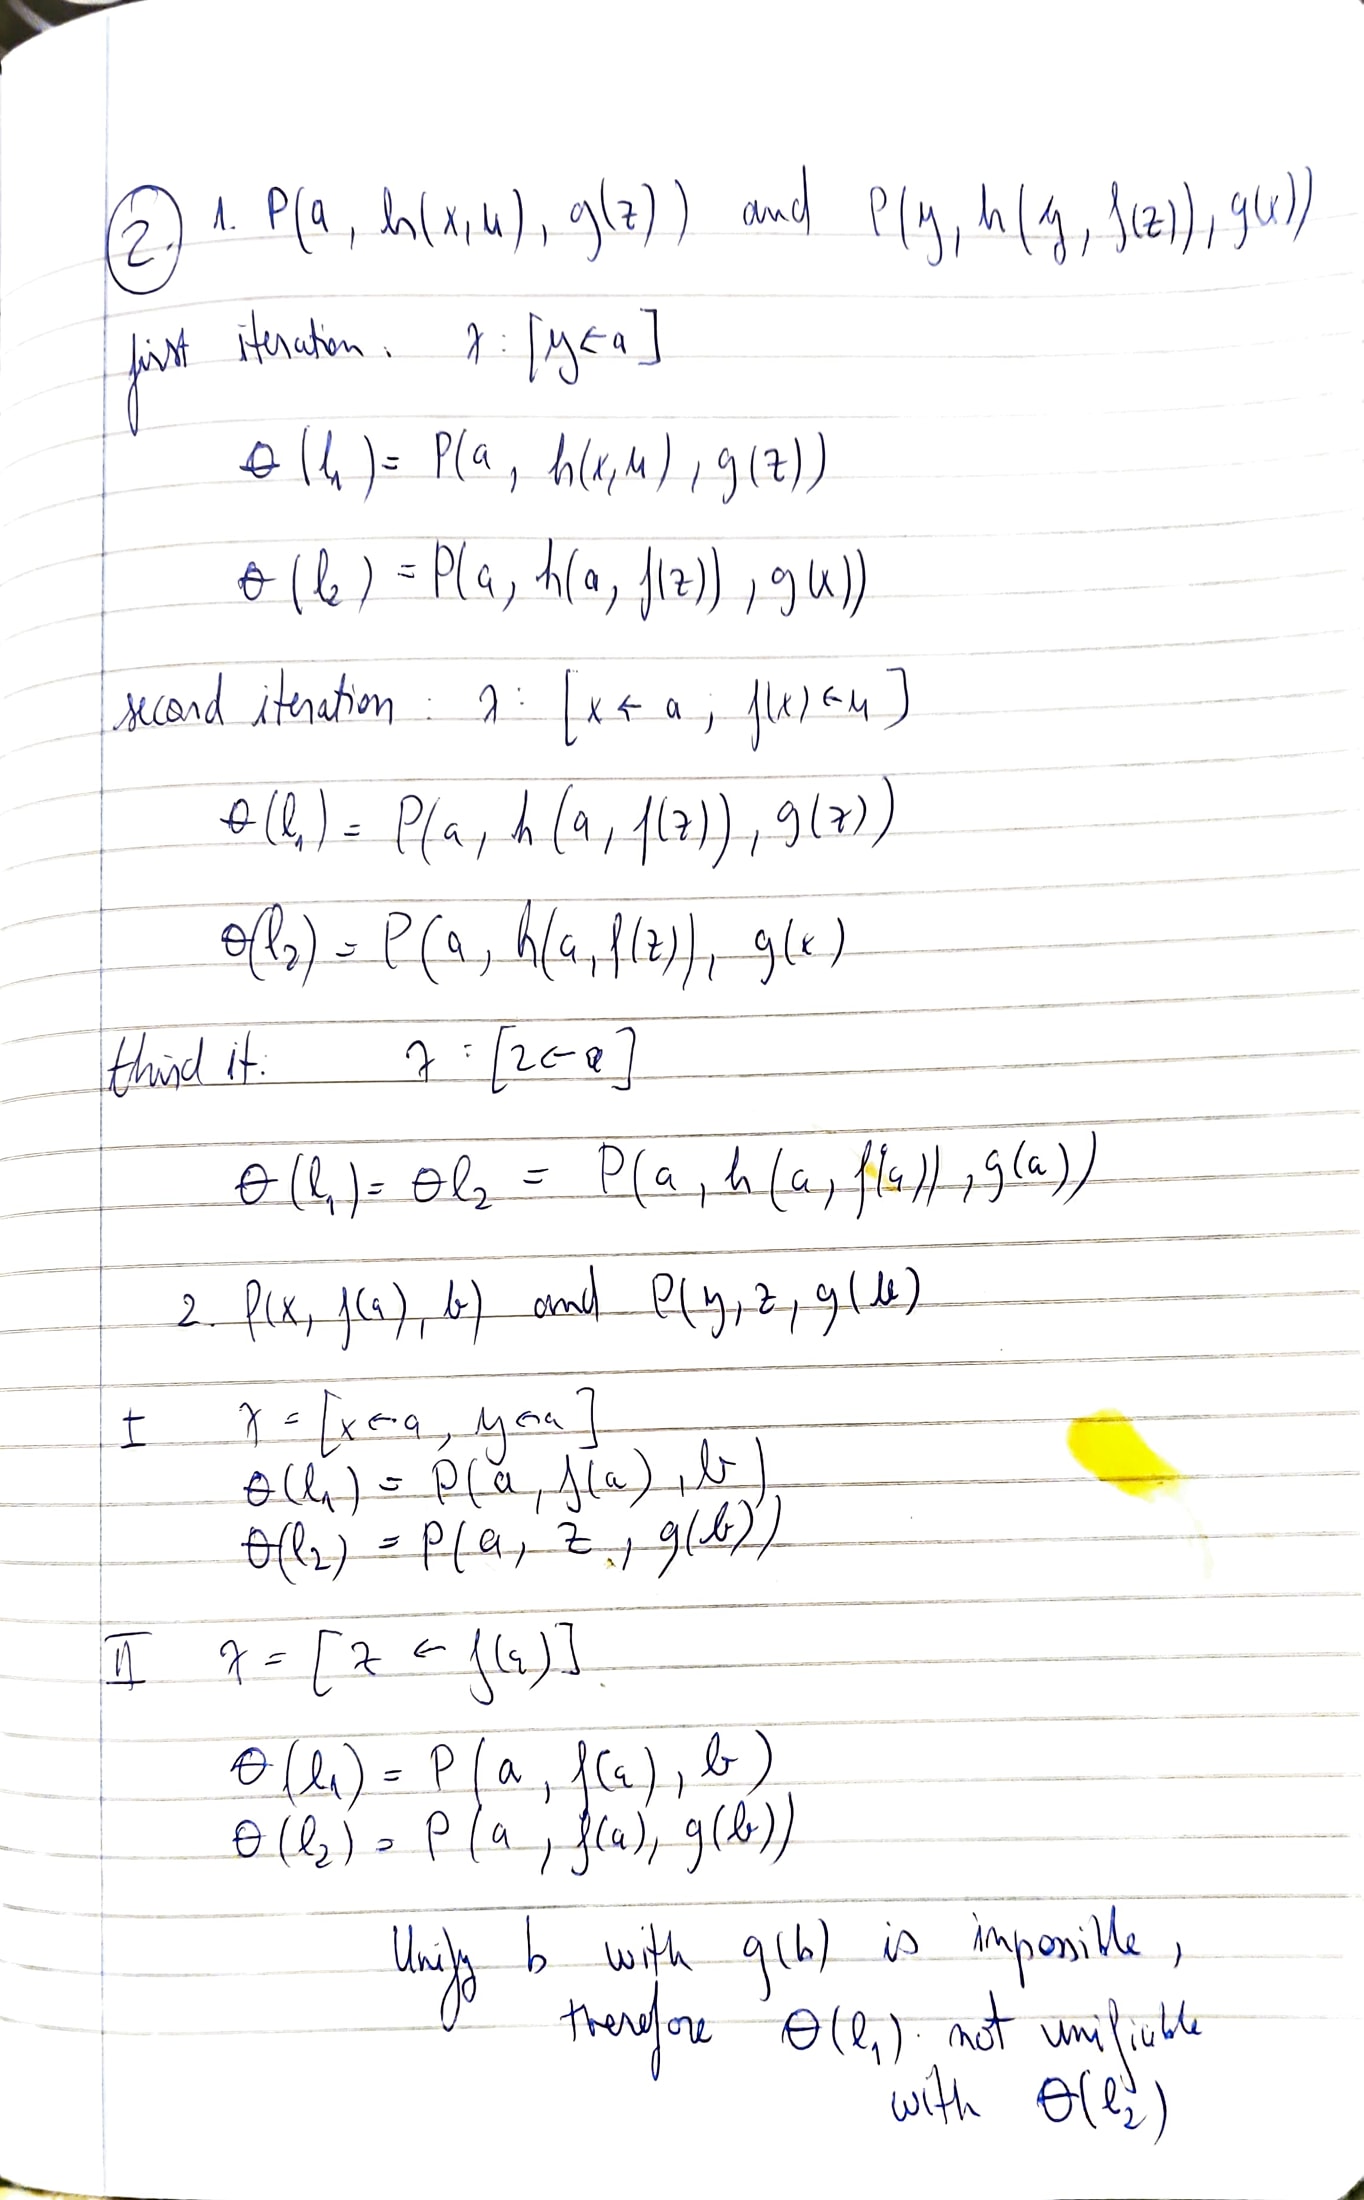 2. 1. P(a, h(x,u), g(z)) and P(y, h(y, f(z)), g(x))
first iteration. λ: [y←a]
θ(l₁) = P(a, h(x,u), g(z))
θ(l₂) = P(a, h(a, f(z)), g(x))
second iteration: λ: [x ← a, f(x) ← u]
θ(l₁) = P(a, h(a, f(z)), g(z))
θ(l₂) = P(a, h(a, f(z)), g(x)
third it: λ: [z←a]
θ(l₁) = θl₂ = P(a, h(a, f(a)), g(a))
2. P(x, f(a), b) and P(y, z, g(b)
I λ = [x←a, y←a]
θ(l₁) = P(a, f(a), b)
θ(l₂) = P(a, z, g(b))
II λ = [z ← f(a)]
θ(l₁) = P(a, f(a), b)
θ(l₂) = P(a, f(a), g(b))
Unify b with g(b) is impossible,
therefore θ(l₁) not unifiable
with θ(l₂)